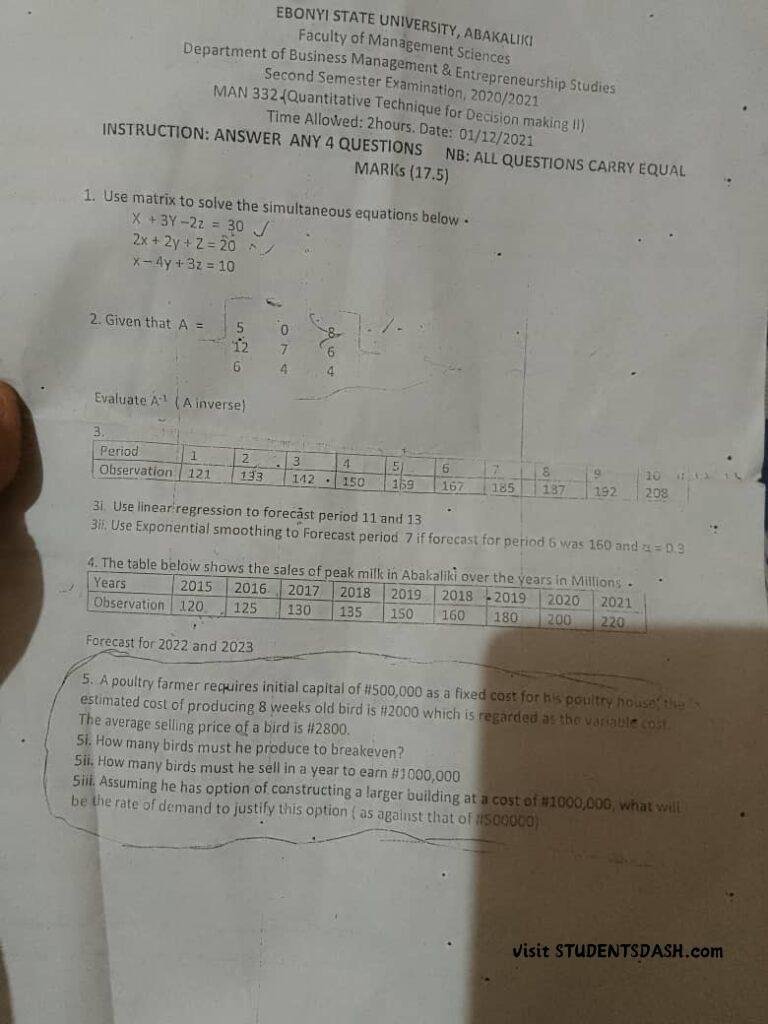 EBONYI STATE UNIVERSITY, ABAKALIKI
Faculty of Management Sciences
Department of Business Management & Entrepreneurship Studies
Second Semester Examination, 2020/2021
MAN 332 (Quantitative Technique for Decision making II)
Time Allowed: 2hours. Date: 01/12/2021
INSTRUCTION: ANSWER ANY 4 QUESTIONS NB: ALL QUESTIONS CARRY EQUAL
MARKs (17.5)
1. Use matrix to solve the simultaneous equations below
X + 3Y –2z = 30
2x + 2y + Z = 20
x – 4y + 3z = 10
2. Given that A = 5 0 8
12 7 6
6 4 4
Evaluate A-1 (A inverse)
3.
Period 1 2 3 4 5 6 7 8 9 10
Observation 121 133 142 150 159 167 185 187 192 208
3i. Use linear regression to forecast period 11 and 13
3ii. Use Exponential smoothing to Forecast period 7 if forecast for period 6 was 160 and α = 0.3
4. The table below shows the sales of peak milk in Abakaliki over the years in Millions
Years 2015 2016 2017 2018 2019 2018 2019 2020 2021
Observation 120 125 130 135 150 160 180 200 220
Forecast for 2022 and 2023
5. A poultry farmer requires initial capital of #500,000 as a fixed cost for his poultry house, the
estimated cost of producing 8 weeks old bird is #2000 which is regarded as the variable cost.
The average selling price of a bird is #2800.
5i. How many birds must he produce to breakeven?
5ii. How many birds must he sell in a year to earn #1000,000
5iii. Assuming he has option of constructing a larger building at a cost of #1000,000, what will
be the rate of demand to justify this option ( as against that of #500000)
Visit STUDENTSDASH.com